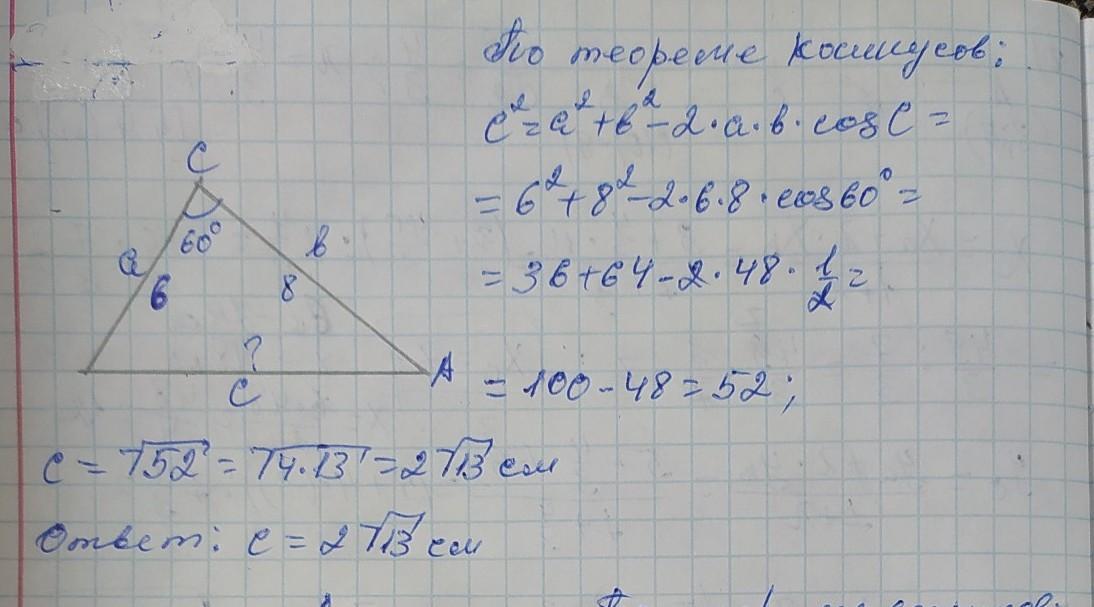 По теореме косинусов:
c² = a² + b² - 2·a·b·cos C =
= 6² + 8² - 2·6·8·cos 60° =
= 36 + 64 - 2·48·1/2 =
= 100 - 48 = 52;
C
60°
a
6
b
8
?
c
A
c = √52 = √4·13 = 2√13 см
Ответ: c = 2√13 см